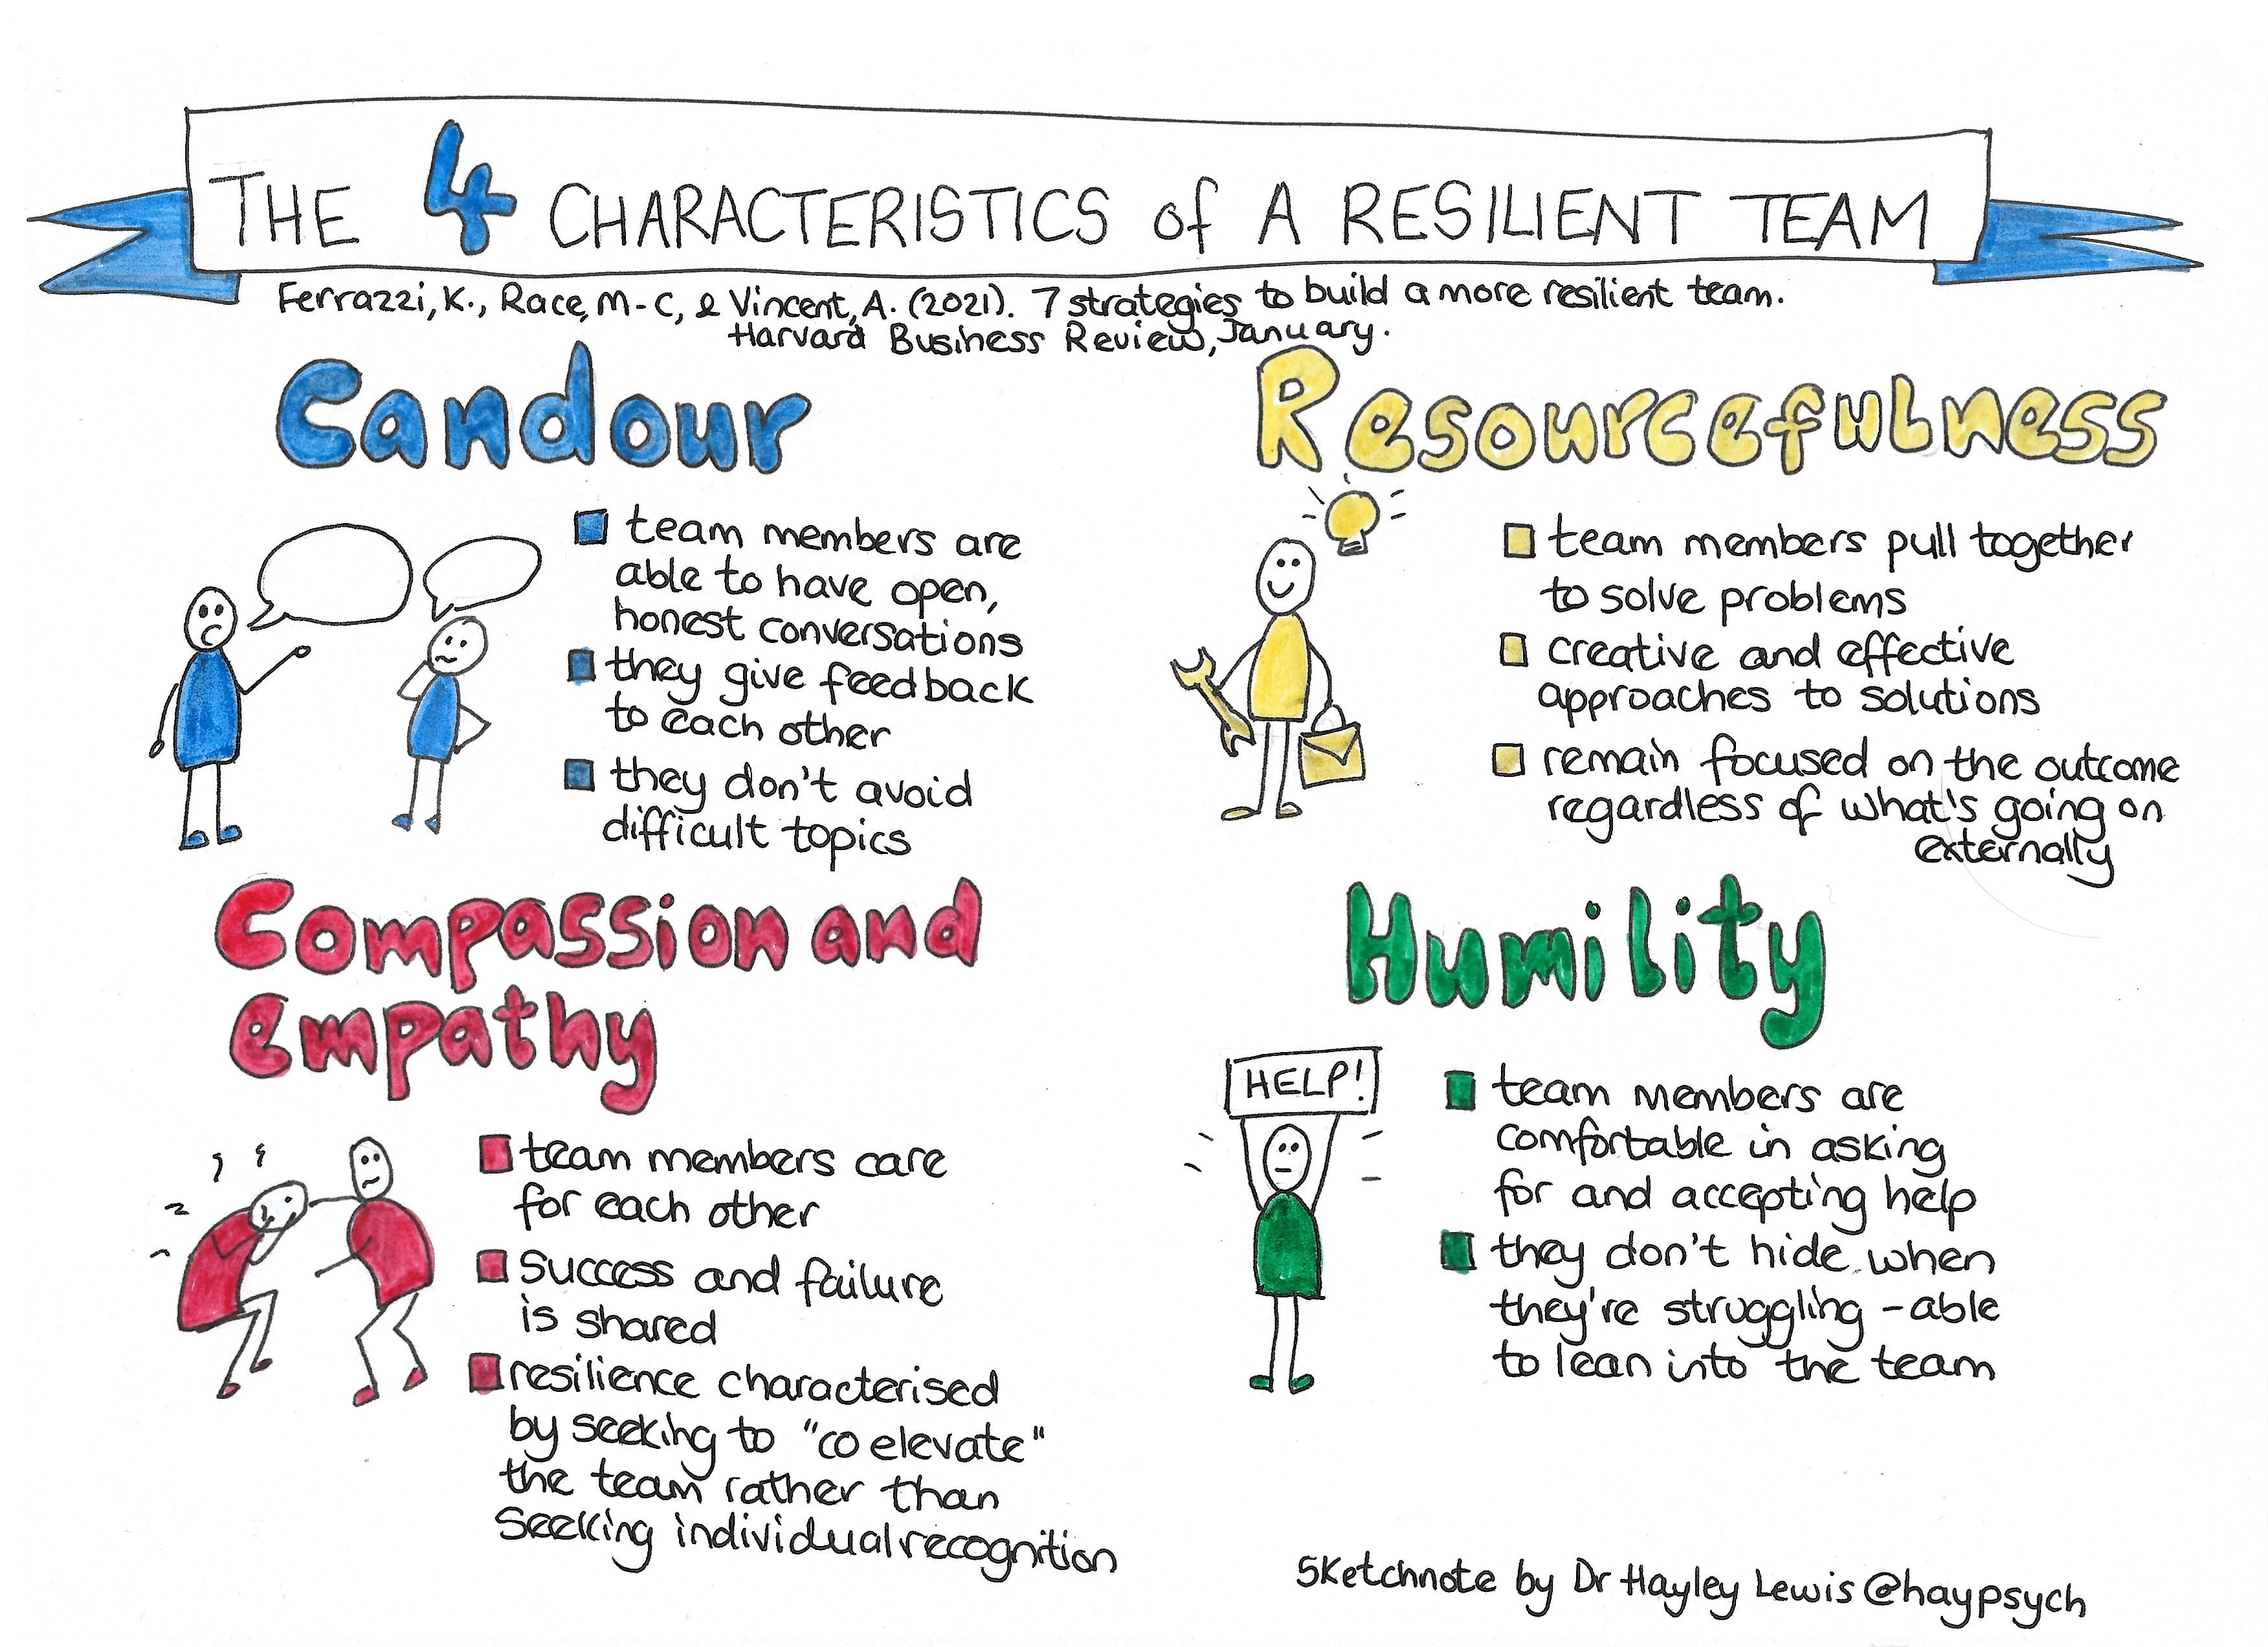 THE 4 CHARACTERISTICS of A RESILIENT TEAM
Ferrazzi, K., Race, M-C, & Vincent, A. (2021). 7 strategies to build a more resilient team.
Harvard Business Review, January.
Candour
team members are
able to have open,
honest conversations
they give feedback
to each other
they don't avoid
difficult topics
Resourcefulness
team members pull together
to solve problems
creative and effective
approaches to solutions
remain focused on the outcome
regardless of what's going on
externally
Compassion and
empathy
team members care
for each other
Success and failure
is shared
resilience characterised
by seeking to "co elevate"
the team rather than
Seeking individual recognition
Humility
HELP!
team members are
comfortable in asking
for and accepting help
they don't hide when
they're struggling - able
to lean into the team
Sketchnote by Dr Hayley Lewis @haypsych